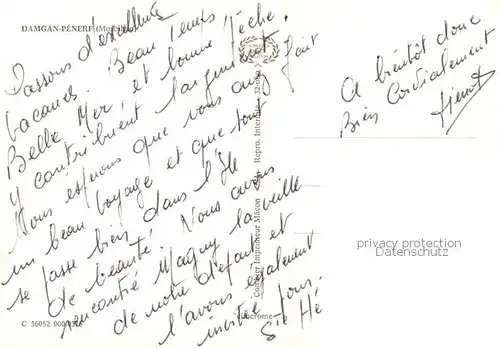 DAMGAN-PÉNERF (Morbihan)
Passons d'excellentes
vacances. Beau temps,
Belle Mer, et bonne pêche.
y contribuent largement
Nous espérons que vous avez fait
un beau voyage et que tout
se passe bien dans l'Ile
de beauté. Nous avons
rencontré Maguy la veille
de notre départ et
l'avons également
invitée pour
Ste Hé
A bientôt donc
Bien Cordialement
Combier Imprimeur Mâcon
Repro. Interdite
privacy protection
Datenschutz
C 56052 000